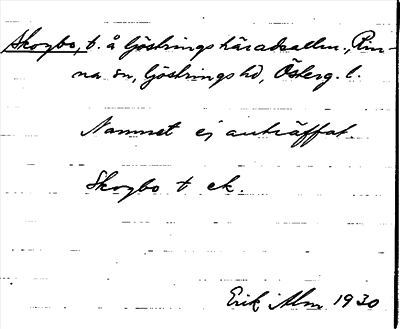 Skogbo, t. å Göstrings häradsallm., Rin-
na sn, Göstrings hd, Österg. l.
Namnet ej anträffat.
Skogbo t ek.
Erik Alm 1930